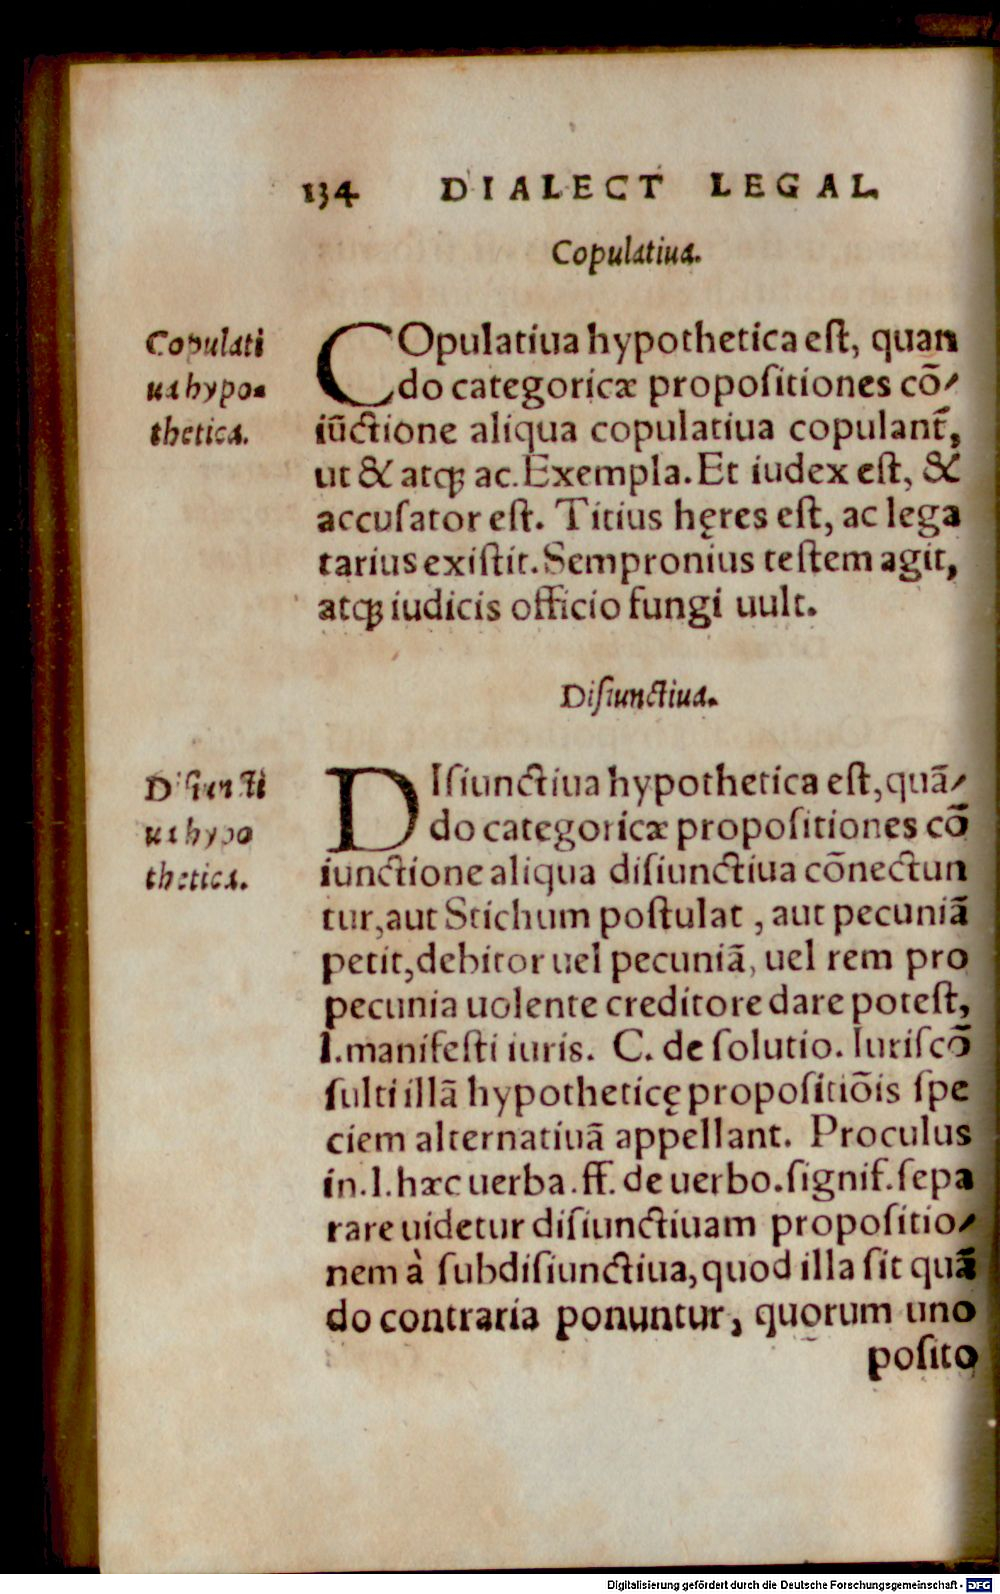 134 DIALECT LEGAL.
Copulatiua.
Copulati
ua hypo-
thetica.
COpulatiua hypothetica est, quan
do categoricæ propositiones cō-
iūctione aliqua copulatiua copulant̃,
ut & atq; ac. Exempla. Et iudex est, &
accusator est. Titius hęres est, ac lega
tarius existit. Sempronius testem agit,
atq; iudicis officio fungi uult.
Disiunctiua.
Disiuncti
ua hypo
thetica.
DIsiunctiua hypothetica est, quā-
do categoricæ propositiones cō
iunctione aliqua disiunctiua cōnectun
tur, aut Stichum postulat, aut pecuniā
petit, debitor uel pecuniā, uel rem pro
pecunia uolente creditore dare potest,
l. manifesti iuris. C. de solutio. Iuriscō
sulti illā hypotheticę propositiōis spe
ciem alternatiuā appellant. Proculus
in. l. hæc uerba. ff. de uerbo. signif. sepa
rare uidetur disiunctiuam propositio-
nem à subdisiunctiua, quod illa sit quā
do contraria ponuntur, quorum uno
posito
Digitalisierung gefördert durch die Deutsche Forschungsgemeinschaft - DFG